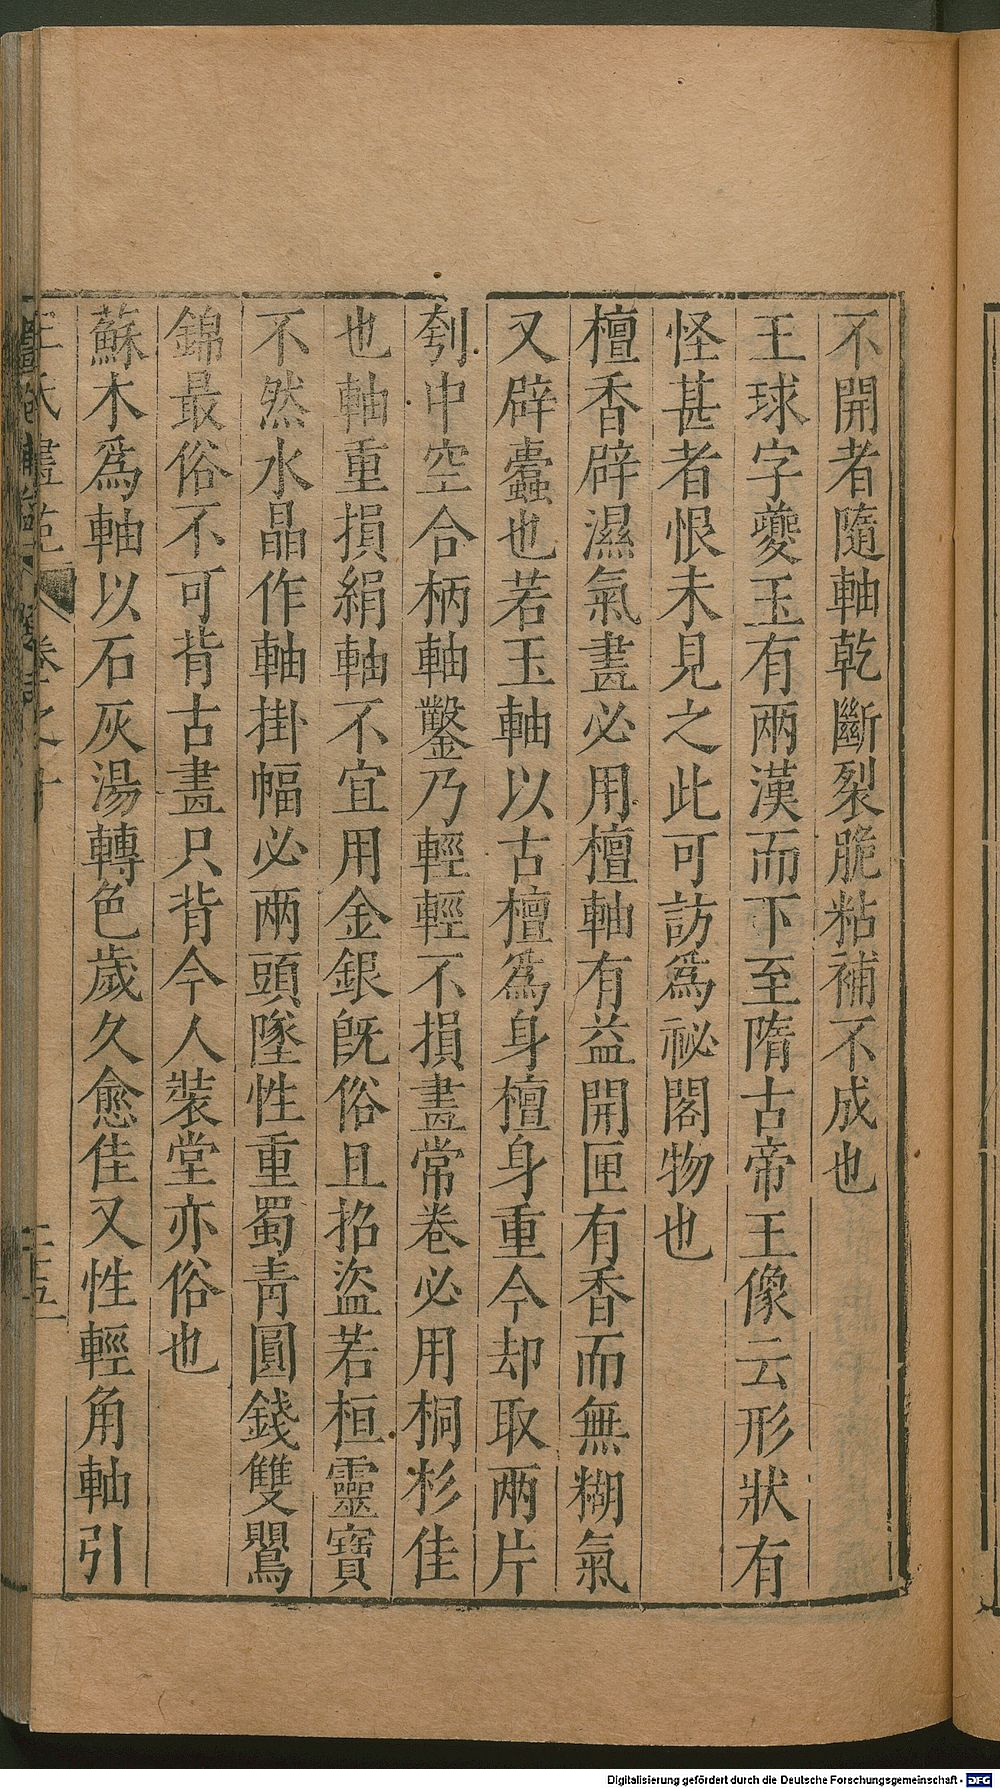 不開者隨軸乾斷裂脆粘補不成也
王球字夔玉有兩漢而下至隋古帝王像云形狀有
怪甚者恨未見之此可訪爲祕閣物也
檀香辟濕氣畫必用檀軸有益開匣有香而無糊氣
又辟蠹也若玉軸以古檀爲身檀身重今却取两片
刳中空合柄軸鑿乃輕輕不損畫常卷必用桐杉佳
也軸重損絹軸不宜用金銀旣俗且招盜若桓靈寶
不然水晶作軸掛幅必两頭墜性重蜀青圓錢雙鸎
錦最俗不可背古畫只背今人裝堂亦俗也
蘇木爲軸以石灰湯轉色歲久愈佳又性輕角軸引
王氏畫苑 卷之十 二五
Digitalisierung gefördert durch die Deutsche Forschungsgemeinschaft - DFG